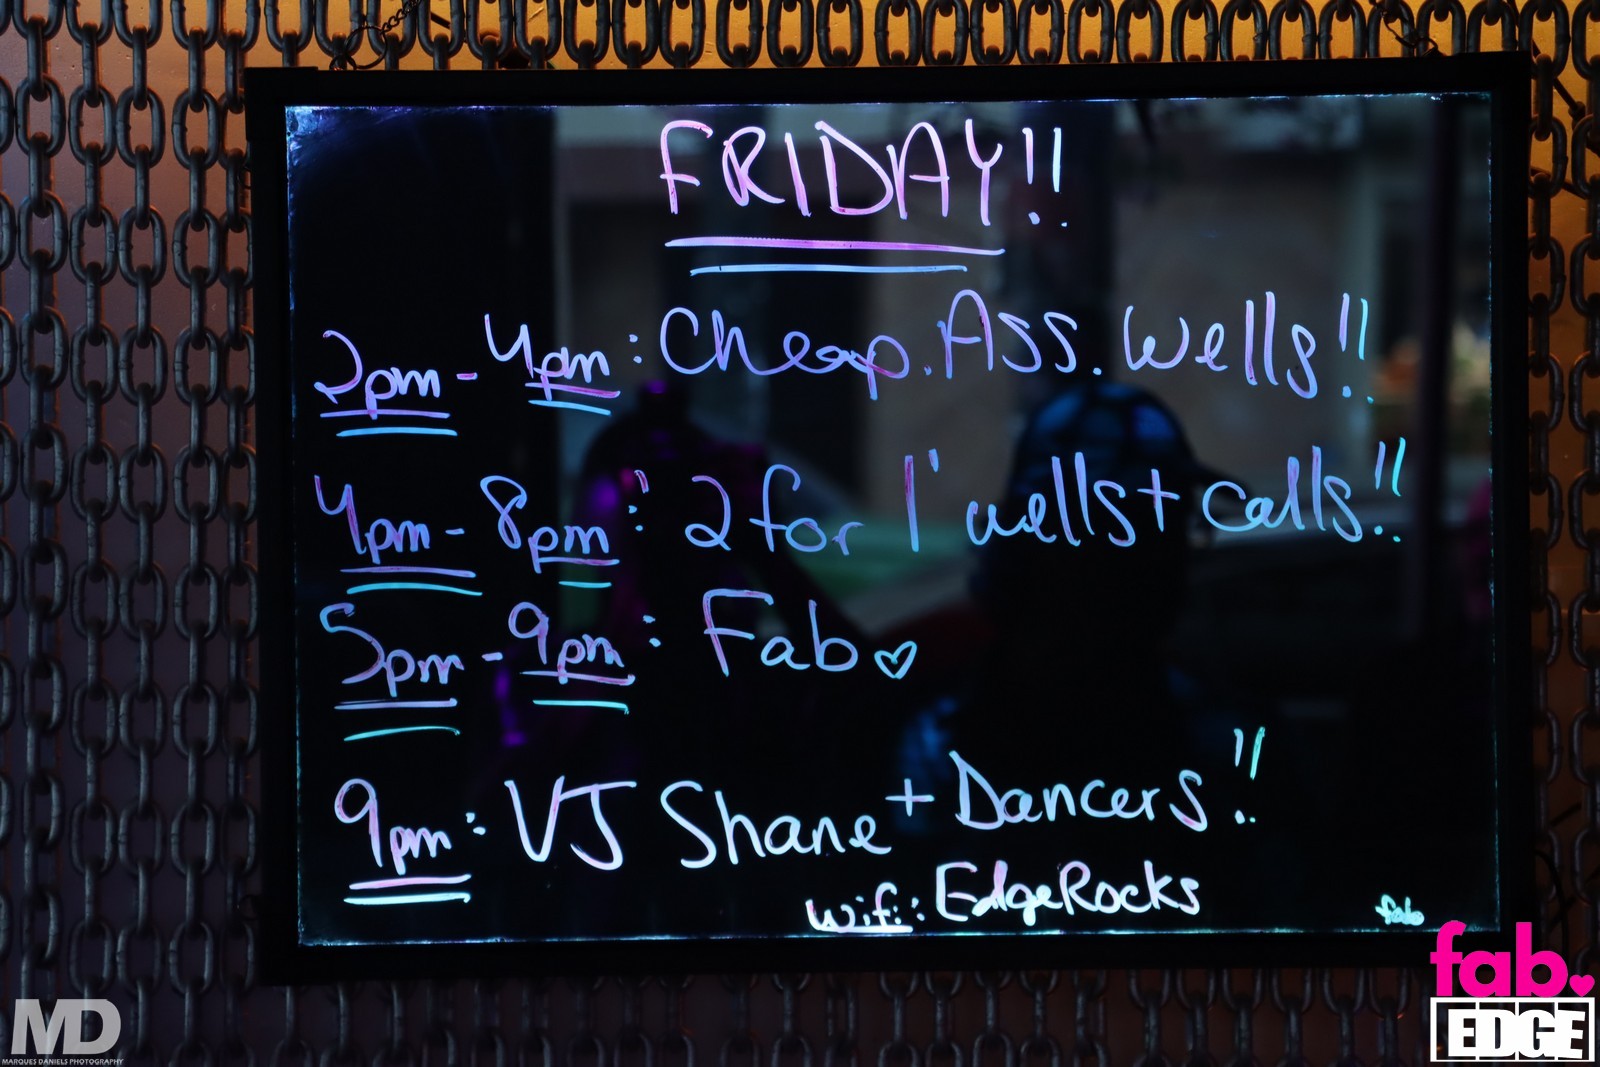 FRIDAY!!
2pm - 4pm : Cheap.Ass.Wells!!
4pm - 8pm : 2 for 1 wells + calls!!
5pm - 9pm : Fab ♡
9pm : VJ Shane + Dancers!!
wifi: EdgeRocks
fab
fab.
EDGE
MD
MARQUES DANIELS PHOTOGRAPHY